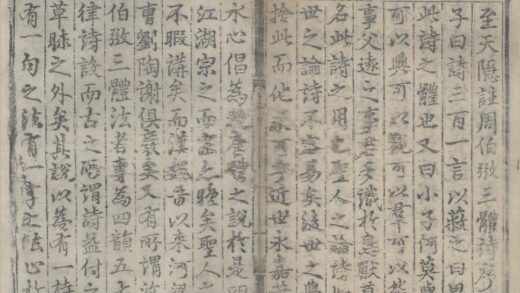 至天隱註周伯弜三體詩序
子曰詩三百一言以蔽之曰思
此詩之體也又曰小子何莫學
可以興可以觀可以群可以怨
事父遠之事君多識於鳥獸草
名此詩之用也聖人之論詩如
世之論詩不容易矣後世之學
捨此而他求可乎近世永嘉葉
水心倡為晚唐體之說於是四
江湖宗之而宋之晚矣聖人之
不暇講矣而漢魏晉以來河梁
曹劉陶謝俱廢矣又有所謂汶
伯弜三體法者專為四韻五七
律詩設而古之所謂詩益付之
草昧之外矣其說以為有一詩
有一句之法有一字之法止於